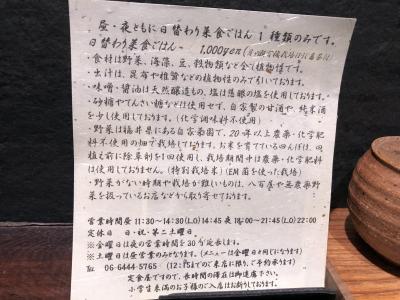 昼・夜ともに日替わり菜食ごはん1種類のみです。
日替わり菜食ごはん 1,000yen
・食材は野菜、海藻、豆、穀物類など全て植物性です。
・出汁は、昆布や椎茸などの植物性のみで引いております。
・味噌・醤油は天然醸造もの、塩は昔銀の塩を使用しております。
・砂糖やてんさい糖などは使用せず、自家製の甘酒や、純米酒
を少し使用しております。(化学調味料不使用)
・野菜は福井県にある自家菜園で、20年以上農薬・化学肥
料不使用の畑で栽培しております。お米を育てている田んぼは、田
植え前に除草剤を1回使用し、栽培期間中は農薬・化学肥料
は使用しておりません。(特別栽培米)(EM菌を使った栽培)
・野菜がない時期や栽培が難しいものは、八百屋や無農薬野
菜を扱っているお店などから取り寄せております。
営業時間昼 11:30~14:30(L.O)14:45 夜 18:00~21:45(L.O)22:00
定休日 日・祝・第二土曜日
※金曜日は夜の営業時間を30分延長します。
※土曜日は昼営業のみとなります。(メニューは金曜日と同じになります)
TEL 06-6444-5765 (12:15までのご来店に限り、ご予約承ります)
定食屋ですので、長時間の滞在は御遠慮下さい。
小学生未満のお子様のご入店はお断りしております。